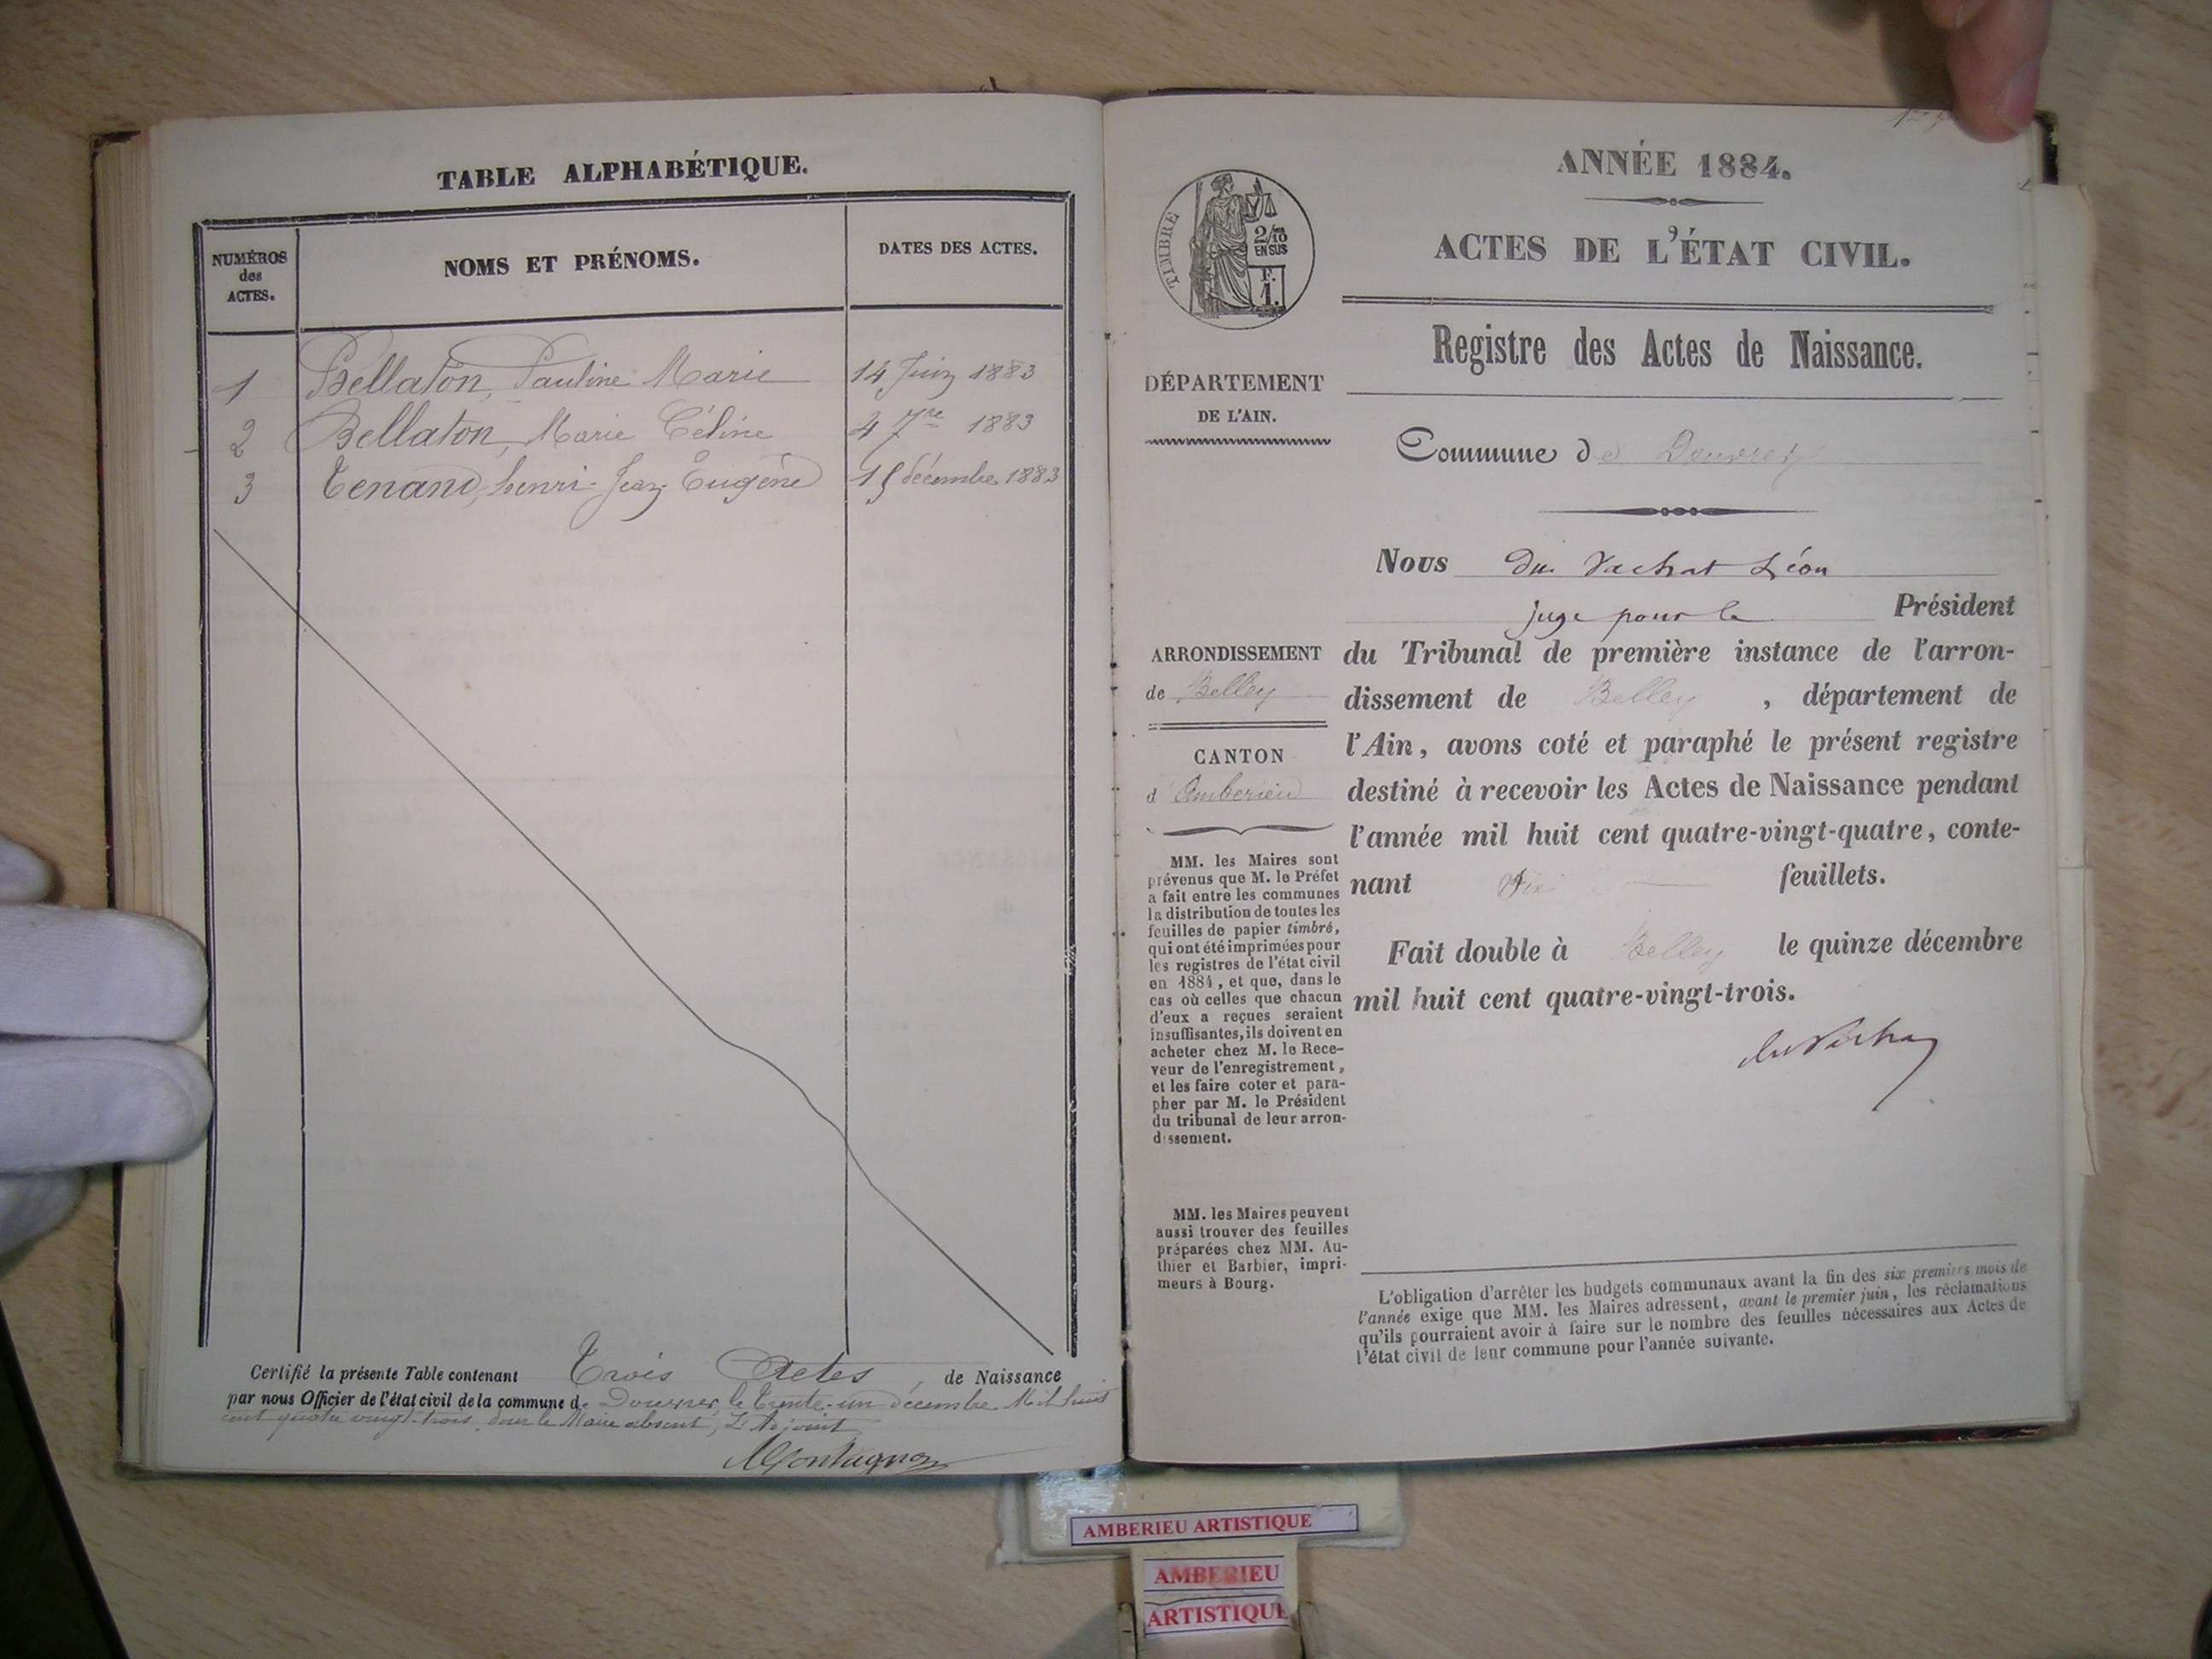 TABLE ALPHABÉTIQUE.
NUMÉROS
des
ACTES.
NOMS ET PRÉNOMS.
DATES DES ACTES.
1 Bellaton, Pauline Marie 14 Juin 1883
2 Bellaton, Marie Céline 4 7re 1883
3 Tenand, henri-Jean-Eugène 15 décembre 1883
Certifié la présente Table contenant Trois Actes, de Naissance
par nous Officier de l'état civil de la commune de Douvres, le Trente-un décembre Mil huit
cent quatre vingt-trois. Pour le Maire absent, L'Adjoint
Montagnon
ANNÉE 1884.
ACTES DE L'ÉTAT CIVIL.
TIMBRE
2/10
EN SUS
F.
1.
Registre des Actes de Naissance.
DÉPARTEMENT
DE L'AIN.
Commune de Douvres
Nous du Vachat Léon
juge pour le Président
du Tribunal de première instance de l'arron-
dissement de Belley, département de
l'Ain, avons coté et paraphé le présent registre
destiné à recevoir les Actes de Naissance pendant
l'année mil huit cent quatre-vingt-quatre, conte-
nant feuillets.
Fait double à Belley le quinze décembre
mil huit cent quatre-vingt-trois.
du Vachat
ARRONDISSEMENT
de Belley
CANTON
d'Amberieu
MM. les Maires sont
prévenus que M. le Préfet
a fait entre les communes
la distribution de toutes les
feuilles de papier timbré,
qui ont été imprimées pour
les registres de l'état civil
en 1884, et que, dans le
cas où celles que chacun
d'eux a reçues seraient
insuffisantes, ils doivent en
acheter chez M. le Rece-
veur de l'enregistrement,
et les faire coter et para-
pher par M. le Président
du tribunal de leur arron-
dissement.
MM. les Maires peuvent
aussi trouver des feuilles
préparées chez MM. Au-
thier et Barbier, impri-
meurs à Bourg.
L'obligation d'arrêter les budgets communaux avant la fin des six premiers mois de
l'année exige que MM. les Maires adressent, avant le premier juin, les réclamations
qu'ils pourraient avoir à faire sur le nombre des feuilles nécessaires aux Actes de
l'état civil de leur commune pour l'année suivante.
AMBERIEU ARTISTIQUE
AMBERIEU
ARTISTIQUE